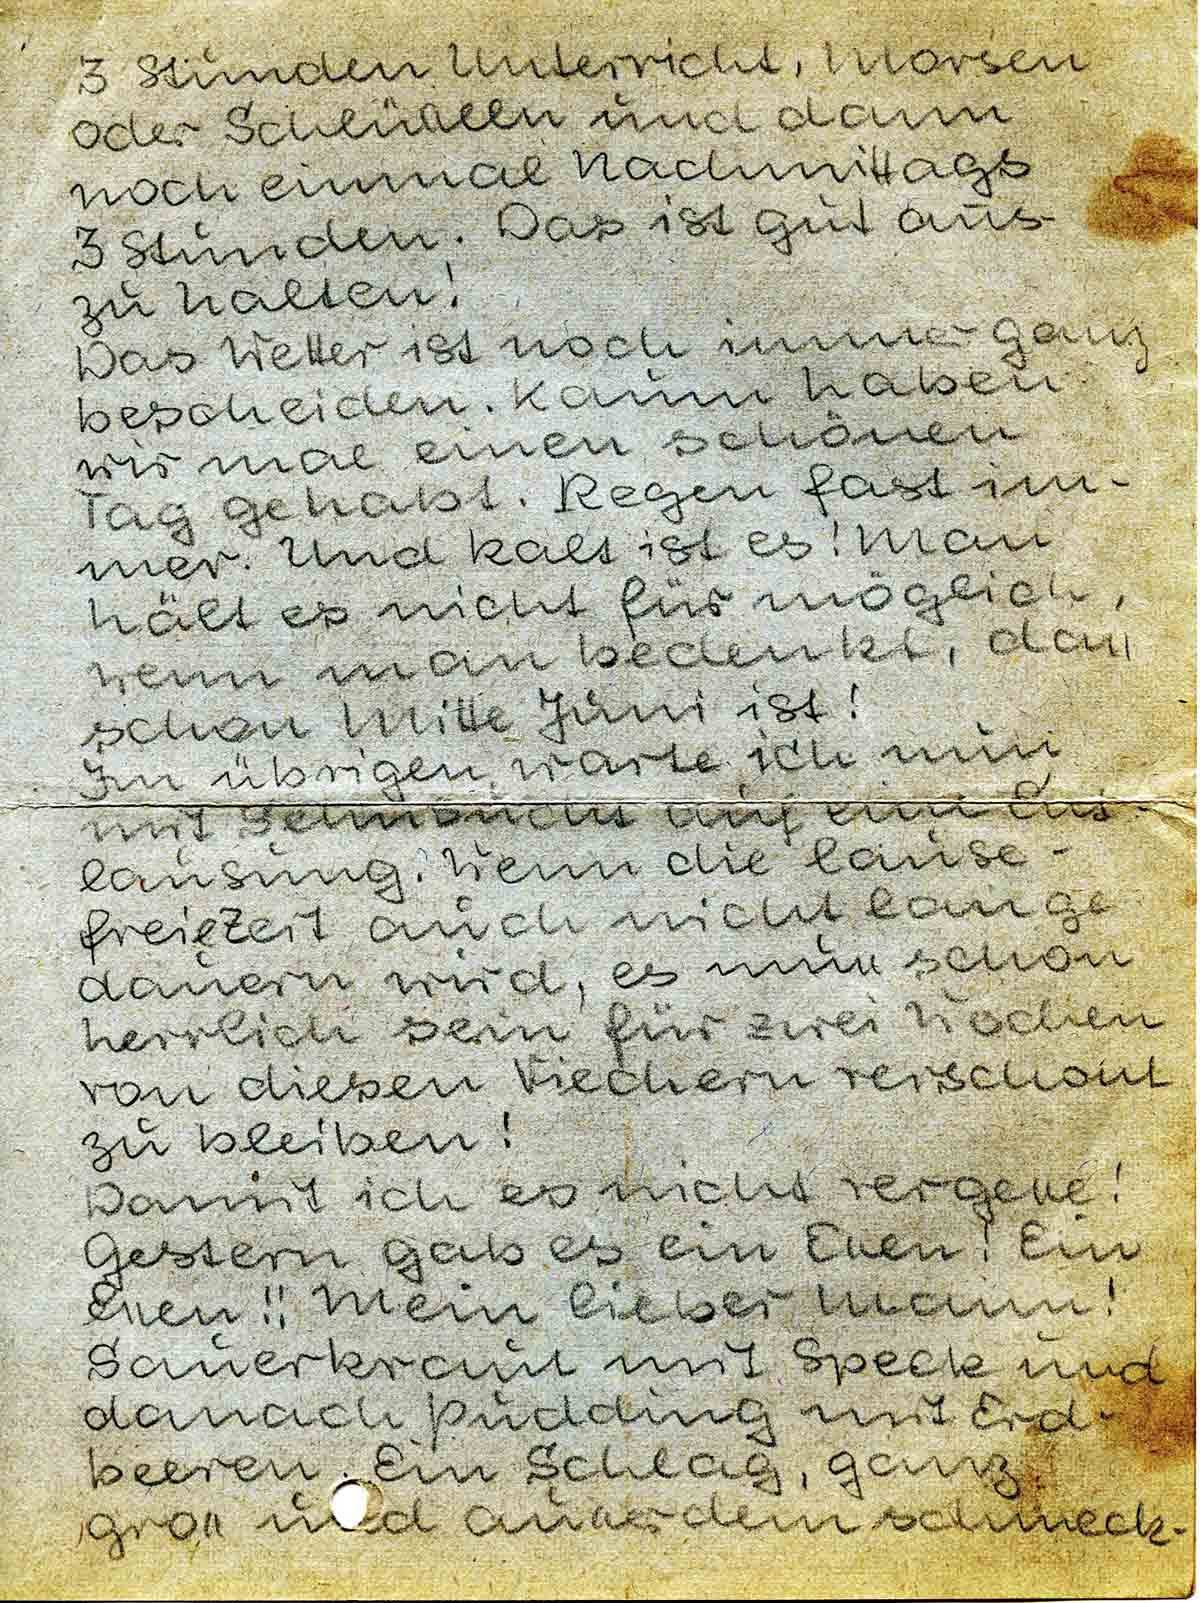 3 Stunden Unterricht, Morsen
oder Schlüsseln und dann
noch einmal Nachmittags
3 Stunden. Das ist gut aus-
zu halten!
Das Wetter ist noch immer ganz
bescheiden. Kaum haben
wir mal einen schönen
Tag gehabt. Regen fast im-
mer. Und kalt ist es! Man
hält es nicht für möglich,
wenn man bedenkt, dass
schon Mitte Juni ist!
Im übrigen warte ich nun
mit Sehnsucht auf eine Ent-
lausung. Wenn die lause-
freie Zeit auch nicht lange
dauern wird, es muss schon
herrlich sein für zwei Wochen
von diesen Viechern verschont
zu bleiben!
Damit ich es nicht vergesse!
Gestern gab es ein Essen! Ein
Essen!! Mein lieber Mann!
Sauerkraut mit Speck und
danach Pudding mit Erd-
beeren. Ein Schlag, ganz
gross und ausserdem schmeck-